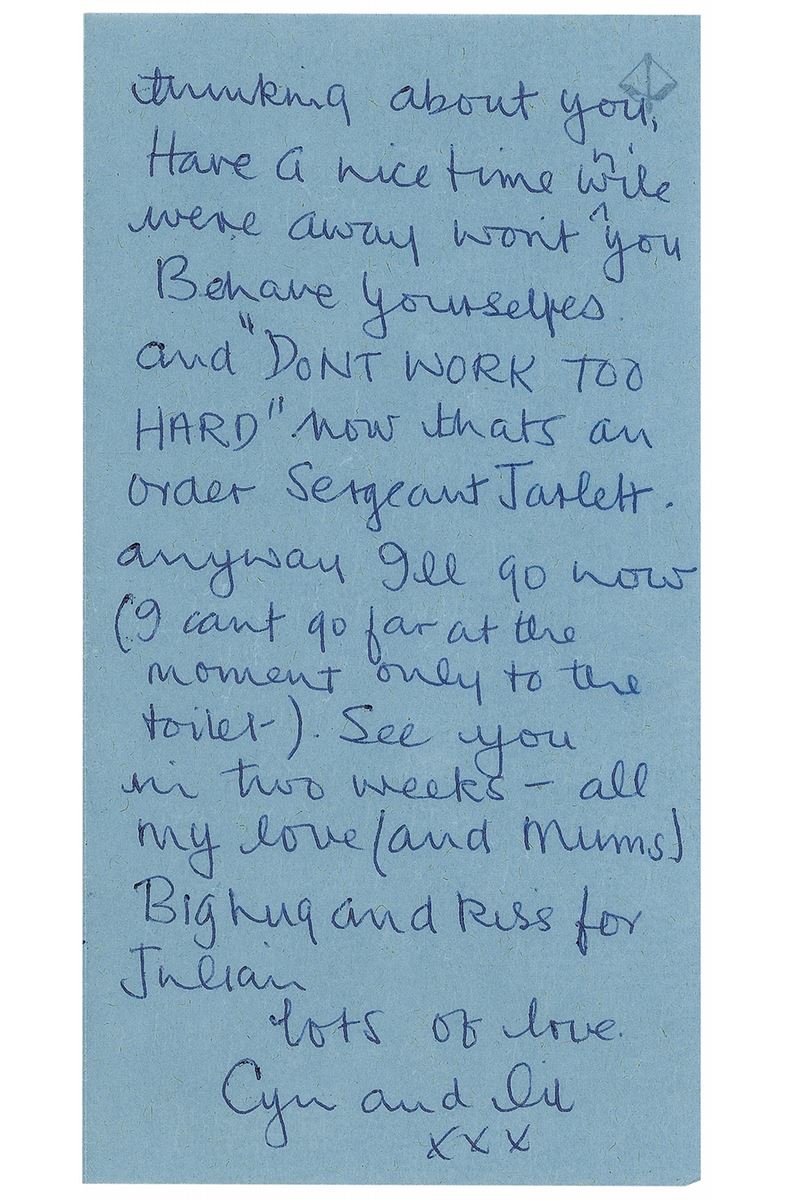 thinking about you,
Have a nice time while
were away wont you
Behave yourselfes.
and "DONT WORK TOO
HARD". now thats an
order Sergeant Jarlett.
anyway I'll go now
(I cant go far at the
moment only to the
toilet). See you
in two weeks – all
my love (and Mums)
Big hug and kiss for
Julian
lots of love.
Cyn and Lil
xxx